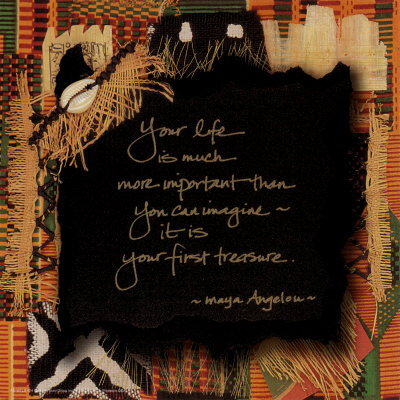 Your life
is much
more important than
you can imagine ~
it is
your first treasure.
~ maya Angelou ~